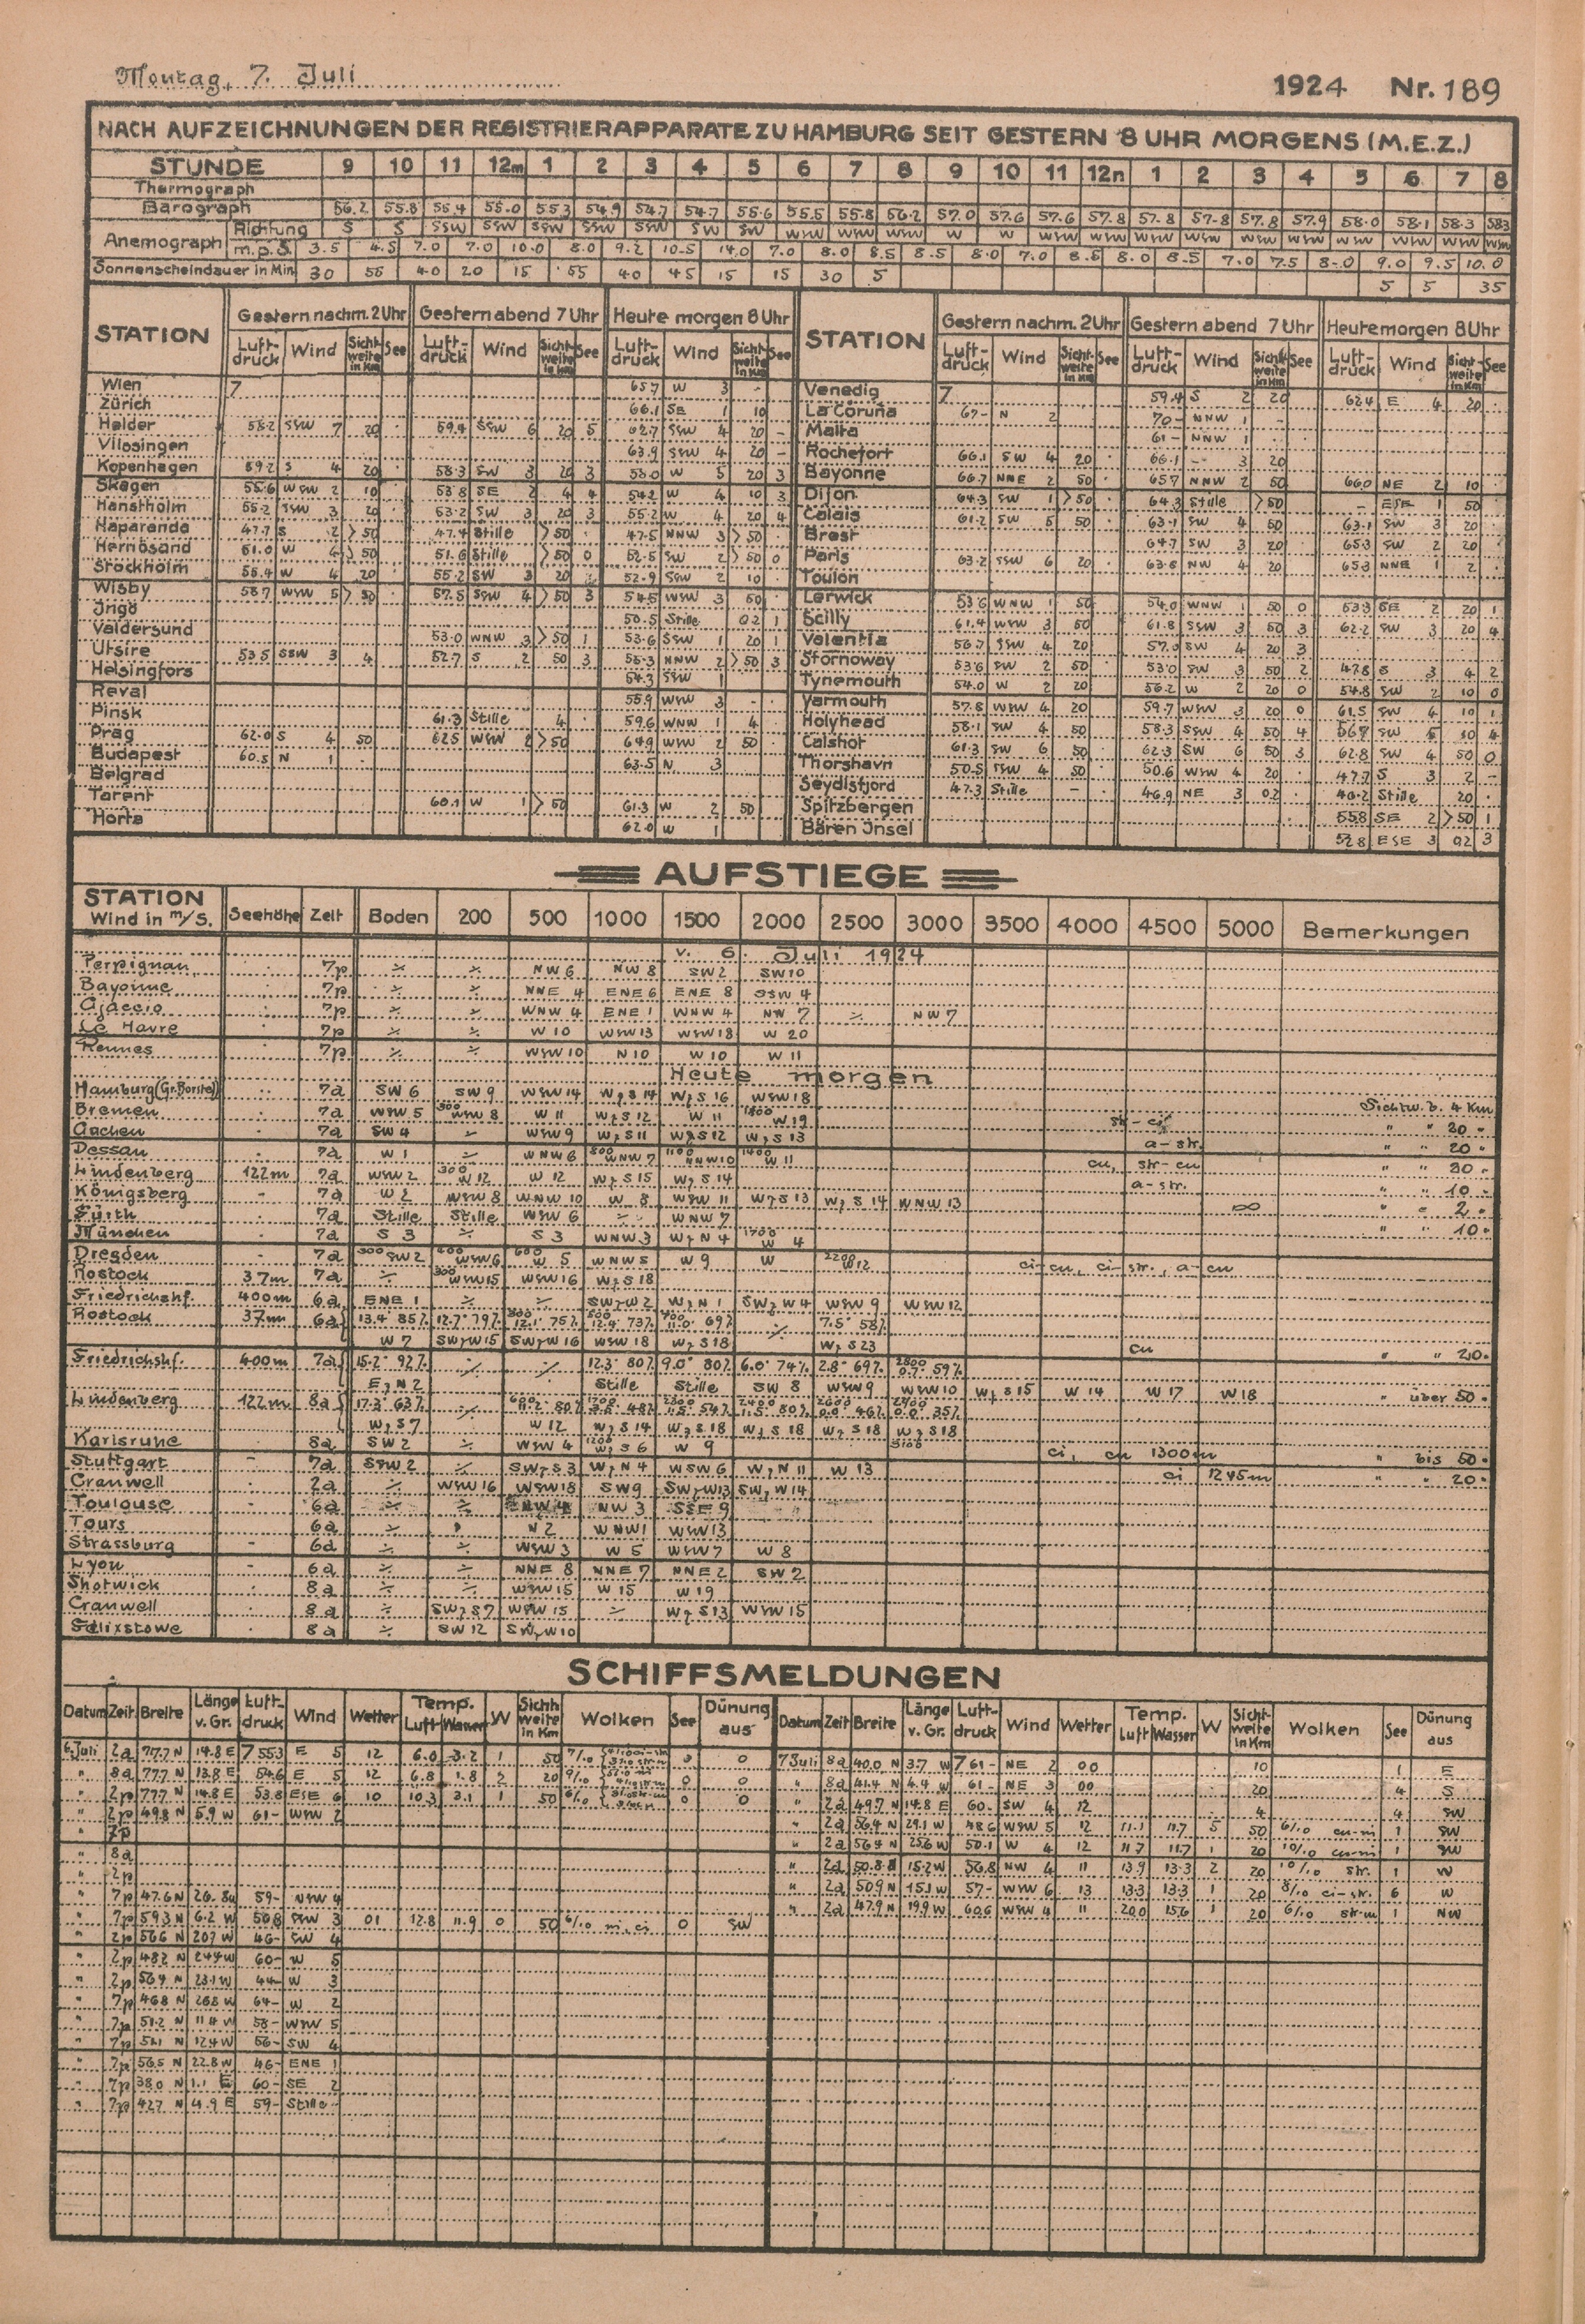 Montag, 7. Juli 1924 Nr. 189
NACH AUFZEICHNUNGEN DER REGISTRIERAPPARATE ZU HAMBURG SEIT GESTERN 8 UHR MORGENS (M.E.Z.)
STUNDE 9 10 11 12m 1 2 3 4 5 6 7 8 9 10 11 12n 1 2 3 4 5 6 7 8
Thermograph
Barograph 56.2 55.8 55.4 55.0 55.3 54.9 54.7 54.7 55.6 55.5 55.8 56.2 57.0 57.6 57.6 57.8 57.8 57.8 57.8 57.9 58.0 58.1 58.3 583
Anemograph Richtung S S SSW SSW SSW SSW SSW SW SW WSW WSW WSW W W WSW WSW WSW WSW WSW WSW WSW WSW WSW WSW
m.p.S. 3.5 4.5 7.0 7.0 10.0 8.0 9.2 10.5 14.0 7.0 8.0 8.5 8.5 8.0 7.0 8.5 8.0 8.5 7.0 7.5 8.0 9.0 9.5 10.0
Sonnenscheindauer in Min. 30 55 40 20 15 55 40 45 15 15 30 5 5 5 35
STATION Gestern nachm. 2 Uhr Gestern abend 7 Uhr Heute morgen 8 Uhr STATION Gestern nachm. 2 Uhr Gestern abend 7 Uhr Heute morgen 8 Uhr
Luft-druck Wind Sicht-weite in Km See Luft-druck Wind Sicht-weite in Km See Luft-druck Wind Sicht-weite in Km See Luft-druck Wind Sicht-weite in Km See Luft-druck Wind Sicht-weite in Km See Luft-druck Wind Sicht-weite in Km See
Wien 7 657 W 3 - Venedig 7 59.4 S 2 20 624 E 4 20
Zürich 66.1 SE 1 10 La Coruña 67- N 2 70- NNW 1 -
Helder 58.2 SSW 7 20 59.4 SSW 6 20 5 62.7 SSW 4 20 - Malta 61- NNW 1
Vlissingen 63.9 SSW 4 20 - Rochefort 66.1 SW 4 20 66.1 -- 3 20
Kopenhagen 59.2 S 4 20 58.3 SW 3 20 3 53.0 W 5 20 3 Bayonne 66.7 NNE 2 50 657 NNW 2 50 660 NE 2 10
Skagen 55.6 WSW 2 10 53.8 SE 2 4 4 54.2 W 4 10 3 Dijon 64.3 SW 1 >50 64.3 Stille >50 - ESE 1 50
Hanstholm 55.2 SSW 3 20 53.2 SW 3 20 3 55.2 W 4 20 4 Calais 61.2 SW 5 50 63.1 SW 4 50 63.1 SW 3 20
Haparanda 47.7 S 2 >50 47.4 Stille >50 47.5 NNW 3 >50 Brest 64.7 SW 3 20 653 SW 2 20
Hernösand 51.0 W 4 >50 51.6 Stille >50 0 52.5 SW 2 >50 0 Paris 63.2 SSW 6 20 63.8 NW 4 20 653 NNE 1 2
Stockholm 55.4 W 4 20 55.2 SW 3 20 52.9 SSW 2 10 Toulon
Wisby 58.7 WSW 5 >50 57.5 SSW 4 >50 3 54.5 WSW 3 50 Lerwick 53.6 WNW 1 50 54.0 WNW 1 50 0 53.3 SE 2 20 1
Ingö 50.5 Stille 02 1 Scilly 61.4 WSW 3 50 61.8 SSW 3 50 3 62.2 SW 3 20 4
Valdersund 53.0 WNW 3 >50 1 53.6 SSW 1 20 1 Valentia 56.7 SSW 4 20 57.0 SW 4 20 3
Utsire 53.5 SSW 3 4 52.7 S 2 50 3 55.3 NNW 2 >50 3 Stornoway 53.6 SW 2 50 53.0 SW 3 50 2 47.8 S 3 4 2
Helsingfors 54.3 SSW 1 Tynemouth 54.0 W 2 20 56.2 W 2 20 0 54.8 SW 2 10 0
Reval 55.9 WSW 3 - Yarmouth 57.8 WSW 4 20 59.7 WSW 3 20 0 61.5 SW 4 10 1
Pinsk 61.3 Stille 4 59.6 WNW 1 4 Holyhead 58.1 SW 4 50 58.3 SSW 4 50 4 SW 4
Prag 62.0 S 4 50 625 WSW 2 >50 649 WSW 2 50 Calshot 61.3 SW 6 50 62.3 SW 6 50 3 62.8 SW 4 50 0
Budapest 60.5 N 1 63.5 N 3 Thorshavn 50.5 SSW 4 50 50.6 WSW 4 20 47.7 S 3 2 -
Belgrad Seydisfjord 47.3 Stille - 46.9 NE 3 02 Stille 20
Tarent 60.1 W 1 >50 61.3 W 2 50 Spitzbergen 55.8 SE 2 >50 1
Horta 62.0 W 1 Bären Insel 52.8 ESE 3 02 3
AUFSTIEGE
STATION Wind in m/s. Seehöhe Zeit Boden 200 500 1000 1500 2000 2500 3000 3500 4000 4500 5000 Bemerkungen
v. 6. Juli 1924
Perpignan 7p ٪ ٪ NW 6 NW 8 SW 2 SW 10
Bayonne 7p ٪ ٪ NNE 4 ENE 6 ENE 8 SSW 4
Ajaccio 7p ٪ ٪ WNW 4 ENE 1 WNW 4 NW 7 ٪ NW 7
Le Havre 7p ٪ ٪ W 10 WSW 13 WSW 18 W 20
Rennes 7p ٪ ٪ WSW 10 N 10 W 10 W 11
Heute morgen
Hamburg (Gr. Borstel) 7a SW 6 SW 9 WSW 14 WzS 14 WzS 16 WSW 18 Sichtw. b. 4 Km.
Bremen 7a WSW 5 300 WSW 8 W 11 WzS 12 W 11 W 19 str-ci " " 20 "
Aachen 7a SW 4 ٪ WSW 9 WzS 11 WzS 12 WzS 13 a-str. " " 20 "
Dessau 7a W 1 ٪ WNW 6 800 WNW 7 1100 WNW 10 1400 W 11 cu, str-cu " " 20 "
Lindenberg 122m 7a WSW 2 300 W 12 W 12 WzS 15 WzS 14 a-str. " " 10 "
Königsberg - 7a W 2 WSW 8 WNW 10 W 8 WSW 11 WzS 13 WzS 14 WNW 13 ∞ " " 2 "
Fürth 7a Stille Stille WSW 6 ٪ WNW 7 " " 10 "
München 7a S 3 ٪ S 3 WNW 3 WzN 4 1700 W 4
Dresden - 7a 300 SW 2 400 WSW 6 600 W 5 WNW 5 W 9 W 2200 W 12 ci-cu, ci-str., a-cu
Rostock 37m 7a ٪ 300 WSW 15 WSW 16 WzS 18
Friedrichshf. 400m 6a ENE 1 ٪ ٪ SWzW 2 WzN 1 SWzW 4 WSW 9 WSW 12
Rostock 37m 6a 13.4° 85% 12.7° 79% 12.1° 75% 12.4° 73% 11.0° 69% ٪ 7.5° 58%
W 7 SWzW 15 SWzW 16 WSW 18 WzS 18 WzS 23 cu " " 20 "
Friedrichshf. 400m 7a 15.2° 92% ٪ ٪ 12.3° 80% 9.0° 80% 6.0° 74% 2.8° 69% 2800 0.7° 59%
EzN 2 Stille Stille SW 8 WSW 9 WSW 10 WzS 15 W 14 W 17 W 18 " über 50 "
Lindenberg 122m 8a 17.3° 63% ٪ 80% 48% 54% 80% 46% 35%
WzS 7 W 12 WzS 14 WzS 18 WzS 18 WzS 18 WzS 18
Karlsruhe 8a SW 2 ٪ WSW 4 1200 WzS 6 W 9 3100 ci, cu 1300m " bis 50 "
Stuttgart - 7a SSW 2 ٪ SWzS 3 WzN 4 WSW 6 WzN 11 W 13 ci 1245m " " 20 "
Cranwell 2a ٪ WSW 16 WSW 18 SW 9 SWzW 13 SWzW 14
Toulouse 6a ٪ ٪ NW 3 SSE 9
Tours 6a ٪ N 2 WNW 1 WSW 13
Strassburg - 6a ٪ ٪ WSW 3 W 5 WSW 7 W 8
Lyon - 6a ٪ ٪ NNE 8 NNE 7 NNE 2 SW 2
Shotwick 8a ٪ ٪ WSW 15 W 15 W 19
Cranwell 8a ٪ SWzS 7 WSW 15 ٪ WzS 13 WSW 15
Felixstowe 8a ٪ SW 12 SWzW 10
SCHIFFSMELDUNGEN
Datum Zeit Breite Länge v. Gr. Luft-druck Wind Wetter Temp. Luft Wasser W Sicht-weite in Km Wolken See Dünung aus Datum Zeit Breite Länge v. Gr. Luft-druck Wind Wetter Temp. Luft Wasser W Sicht-weite in Km Wolken See Dünung aus
6. Juli 2a 77.7 N 14.8 E 7 553 E 5 12 6.0 3.2 1 50 7/10 0 7 Juli 8a 40.0 N 3.7 W 7 61- NE 2 00 10 1 E
" 8a 77.7 N 13.8 E 54.6 E 5 12 6.8 1.8 2 20 9/10 0 0 " 8a 41.4 N 4.4 W 61- NE 3 00 20 4 S
" 2p 77.7 N 14.8 E 53.8 ESE 6 10 10.3 3.1 1 50 6/10 0 0 " 2a 49.7 N 14.8 E 60- SW 4 12 4 4 SW
" 2p 49.8 N 5.9 W 61- WSW 2 " 2a 56.4 N 29.1 W 48.6 WSW 5 12 11.1 11.7 5 50 6/10 cu-ni 1 SW
" 7p " 2a 56.4 N 25.6 W 50.1 W 4 12 11.7 11.7 1 20 10/10 cu-ni 1 SW
" 8a " 2a 50.8 N 15.2 W 56.8 NW 4 11 13.9 13.3 2 20 10/10 str. 1 W
" 2p " 2a 50.9 N 15.1 W 57- WSW 6 13 13.3 13.3 1 20 8/10 ci-str. 6 W
" 7p 47.6 N 26.8 W 59- NSW 4 " 2a 47.9 N 19.9 W 60.6 WSW 4 11 20.0 15.6 1 20 6/10 str-m 1 NW
" 7p 59.3 N 6.2 W 50.8 SSW 3 01 12.8 11.9 0 50 6/10 ni, ci 0 SW
" 2p 56.6 N 20.7 W 46- SW 4
" 2p 48.2 N 24.9 W 60- W 5
" 2p 56.9 N 23.1 W 44- W 3
" 7p 46.8 N 26.8 W 64- W 2
" 7p 51.2 N 11.4 W 58- WSW 5
" 7p 52.1 N 12.4 W 56- SW 4
" 7p 56.5 N 22.8 W 46- ENE 1
" 7p 38.0 N 1.1 E 60- SE 2
" 7p 42.7 N 4.9 E 59- Stille